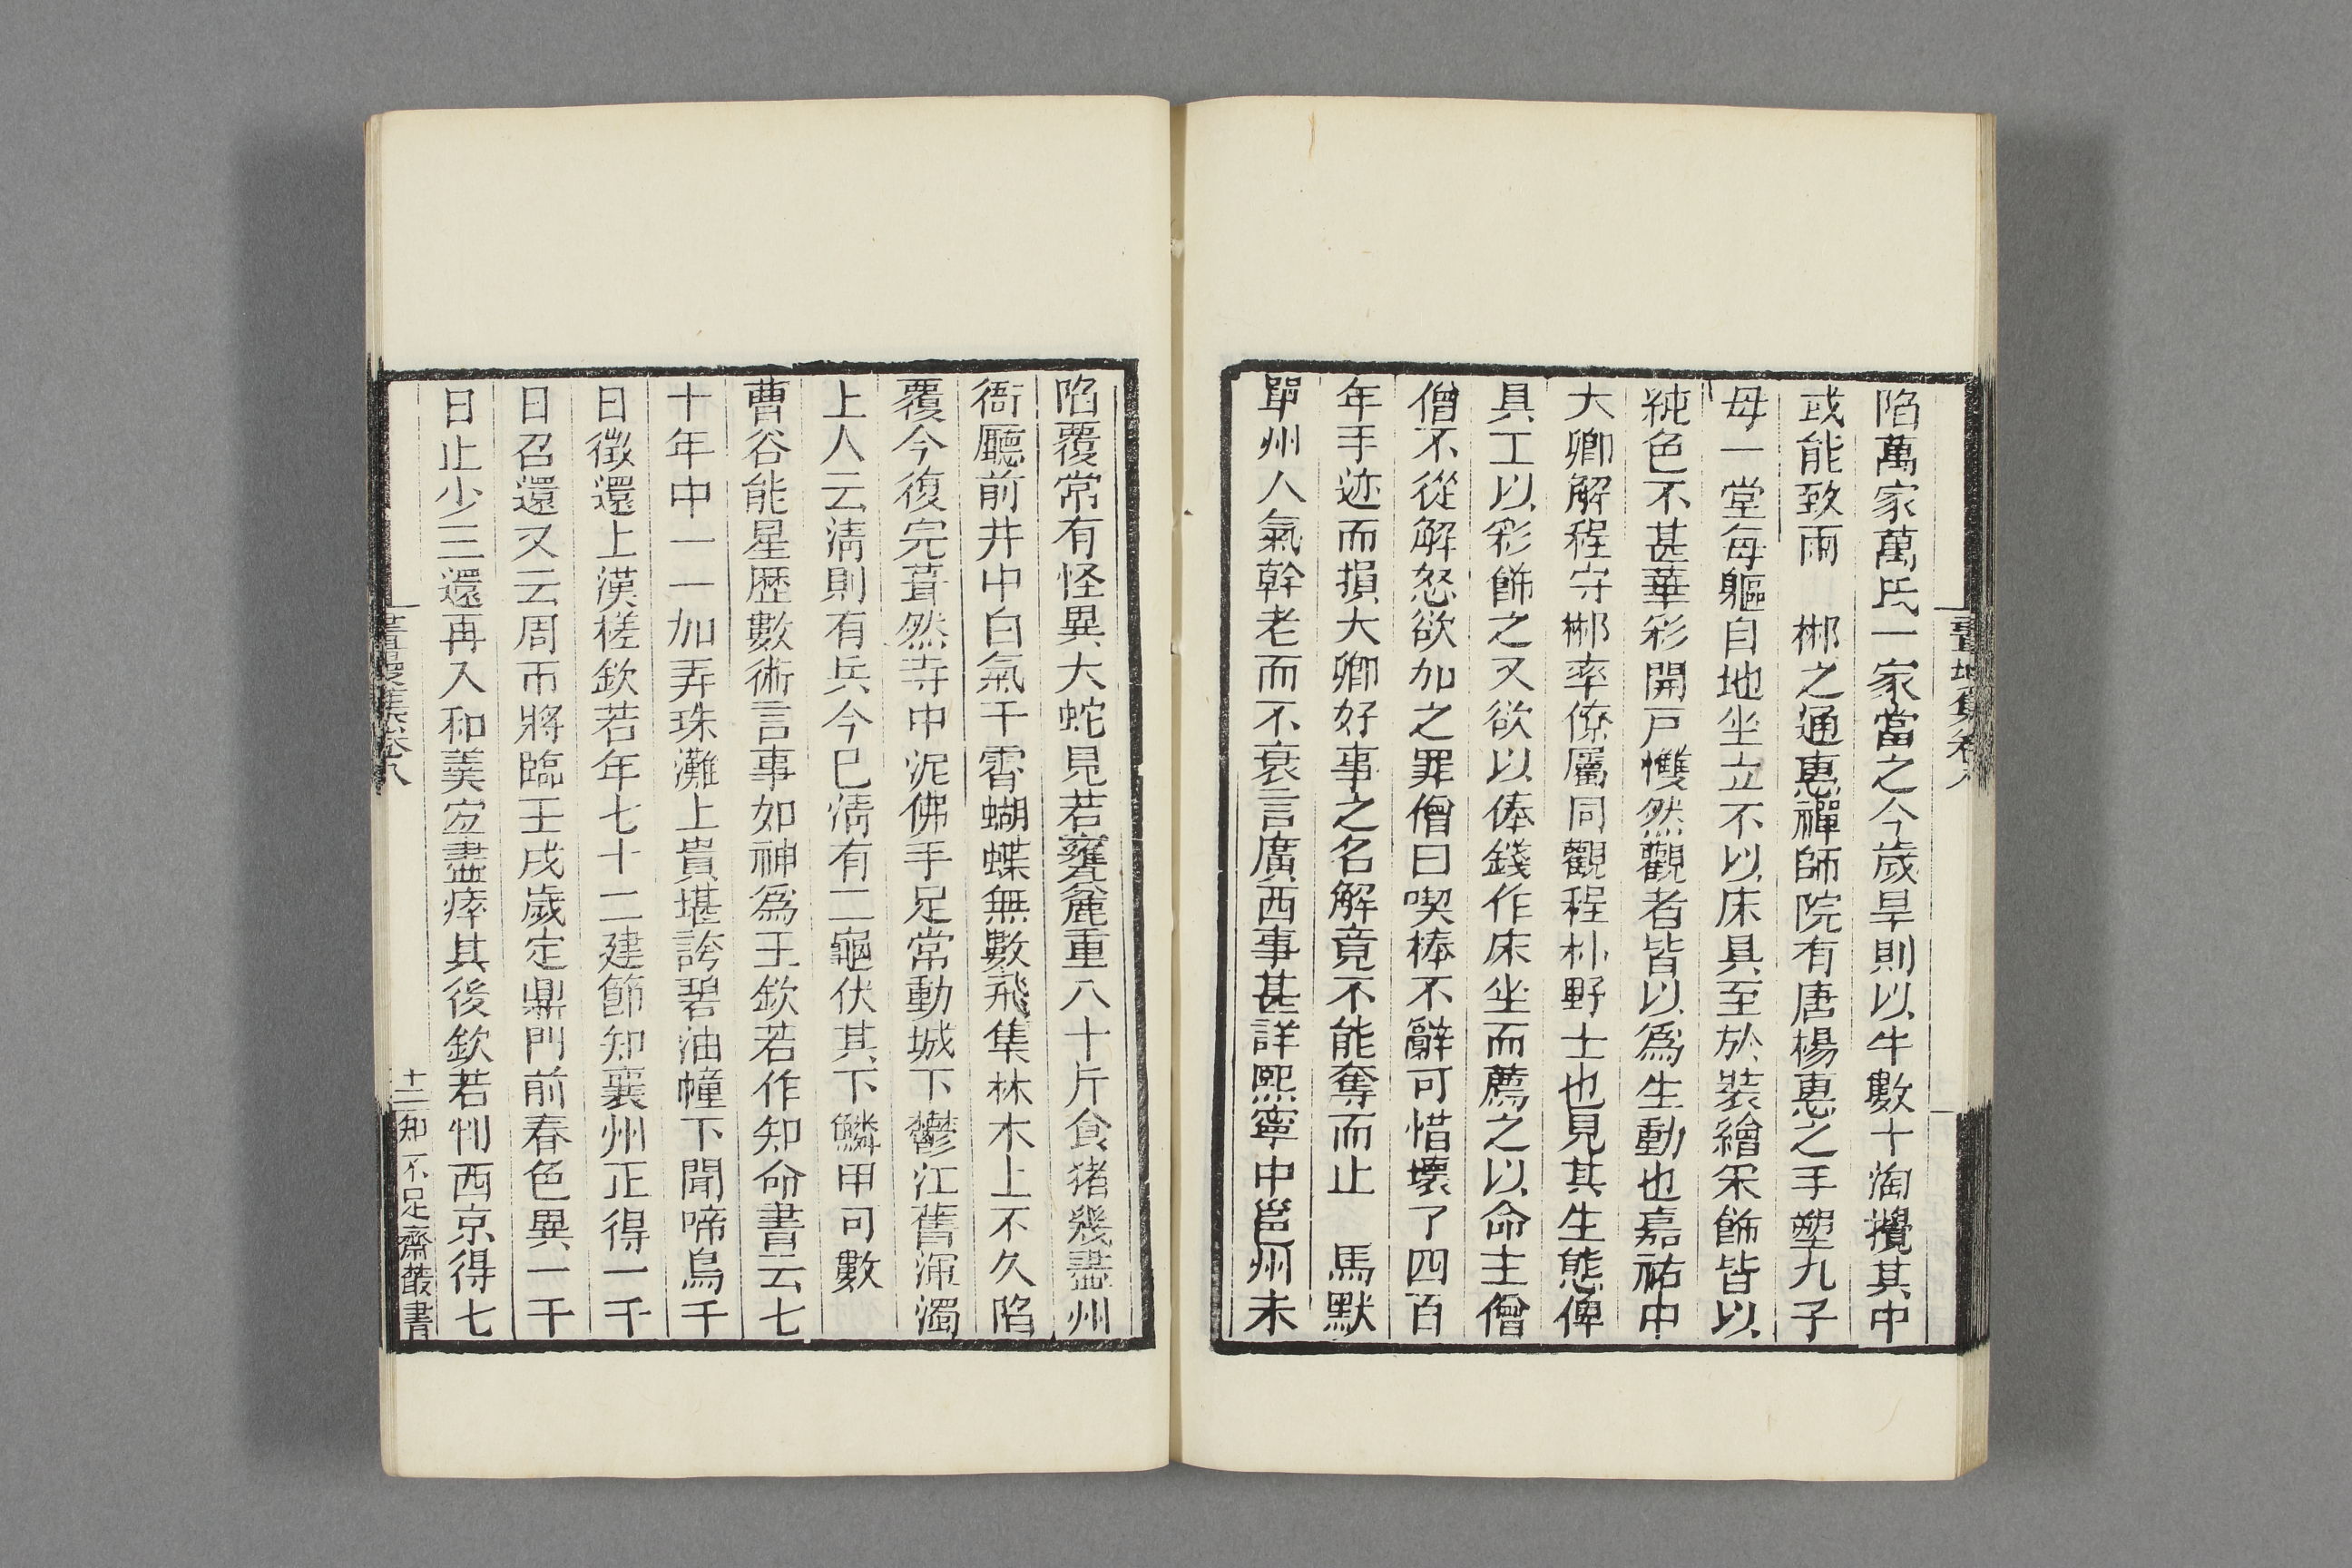 陷萬家萬氏一家當之今歲旱則以牛數十淘攪其中
或能致雨　郴之通惠禪師院有唐楊惠之手塑九子
母一堂每軀自地坐立不以床具至於裝繪采飾皆以
純色不甚華彩開戸䕶然觀者皆以爲生動也嘉祐中
大卿解程守郴率僚屬同觀程朴野士也見其生態俾
具工以彩飾之又欲以俸錢作床坐而薦之以命主僧
僧不從解怒欲加之罪僧曰喫棒不辭可惜壞了四百
年手迹而損大卿好事之名解竟不能奪而止　馬默
單州人氣幹老而不衰言廣西事甚詳熙寧中邕州未
陷覆常有怪異大蛇見若甕麄重八十斤食猪幾盡州
衙廳前井中白氣干霄蝴蝶無數飛集林木上不久陷
覆今復完葺然寺中泥佛手足常動城下鬱江舊渾濁
上人云清則有兵今已清有二龜伏其下鱗甲可數
曹谷能星歷數術言事如神爲王欽若作知命書云七
十年中一一加弄珠灘上貴堪誇碧油幢下聞啼鳥千
日徵還上漢槎欽若年七十二建節知襄州正得一千
日召還又云周而將臨壬戌歲定鼎門前春色異一千
日止少三還再入和羹宜盡瘁其後欽若判西京得七
畫墁集卷八
十二
知不足齋叢書